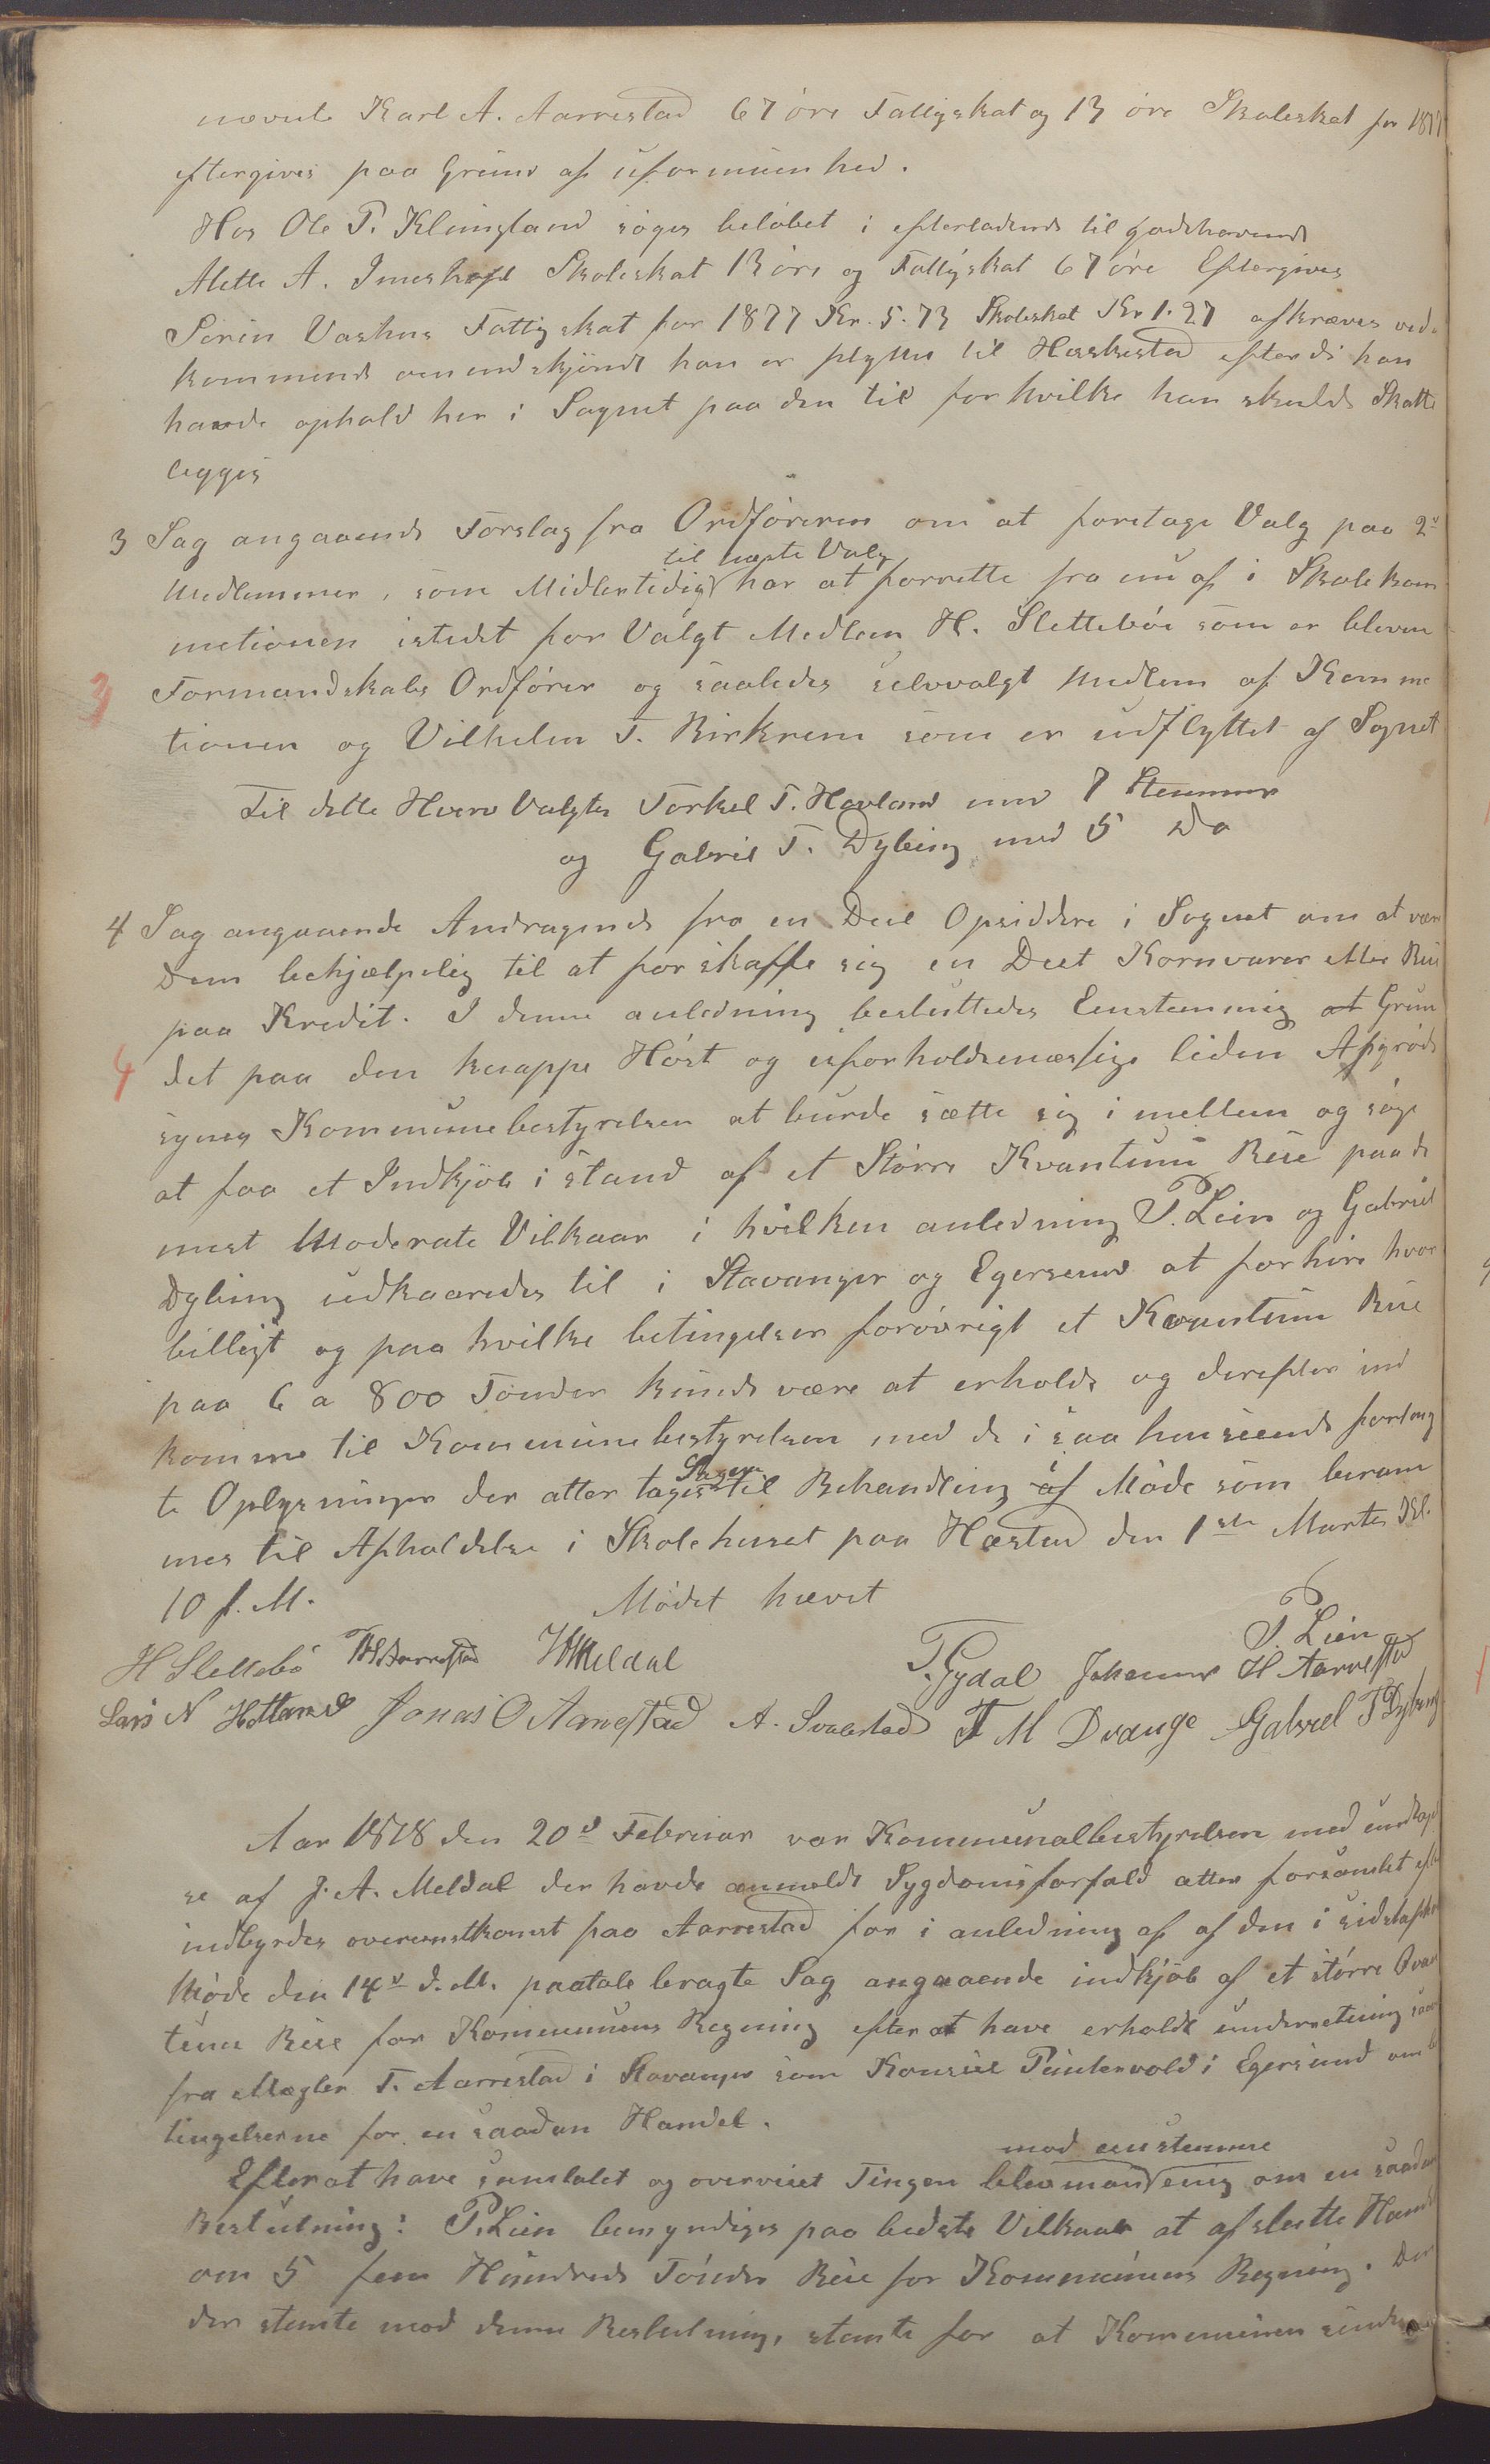 nævnte Karl A. Aarrestad 67 øre Fattigskat og 13 øre Skoleskat for 1877
eftergives paa Grund af uformuenhed.
Hos Ole T. Klungland søges beløbet i efterladende til godehavende
Alette A. Skoleskat 13 øre og Fattigskat 67 øre Eftergives
Sørin Vashus Fattigskat for 1877 Kr. 5.73 Skoleskat Kr 1.27 afkræves ved-
kommende omendskjøndt han er flyttet til Heskestad efterdi han
havde ophold her i Sognet paa den tid for hvilke han skulde Skatte
legges
3 Sag angaaende Forslag fra Ordføreren om at foretage Valg paa 2de
til næste Valg
Medlemmer, som Midlertidig har at forrette fra nu af i Skolekom
metionen istedet for Valgt Medlem H. Slettebøe som er bleven
3 Formandskabs Ordfører og saaledes selvvalgt Medlem af Komme
tionen og Vilhelm T. Birkrem som er udflyttet af Sognet
Til dette Hverv Valgtes Torkel T. Hovland med 7 Stemmer
og Gabriel T. Dybing med 5 Do
4 Sag angaaende Andragende fra en Deel Opsiddere i Sognet om at være
Dem behjælpelig til at forskaffe sig en Deel Kornvarer eller Rug
paa Kredit. I denne anledning besluttedes Eenstemmig at Grun
4 det paa den knappe Høst og uforholdsmæssige liden Afgrøde
synes Kommunebestyrelsen at burde sætte sig i mellem og søge
at faa et Indkjøb i stand af et Større Kvantum Rug paa de
mest Moderate Vilkaar i hvilken anledning P. Lien og Gabriel
Dybing udkaaredes til i Stavanger og Egersund at forhøre hvor
billigt og paa hvilke betingelser forøvrigt et Kvantum Rug
paa 6 a 800 Tønder kunde være at erholde og derefter ind
komme til Kommunebestyrelsen med de i saa henseende forlang
Sagen
te Oplysninger der atter tages til Behandling af Møde som beram
mes til Afholdelse i Skolehuset paa Hæstad den 1ste Marts Kl.
10 f. M. Mødet hævet
P. Lien
H Slettebø Meldal T. Gydal Johannes H Aarrestad
Lars N Hetland Jonas O Aarrestad A. Svalestad T M Drange Gabriel T Dybing
Aar 1878 den 20de Februar var Kommunalbestyrelsen med undtagel
se af J. A. Meldal der havde anmeldt Sygdomsforfald atter forsamlet efter
indbyrdes overenstkomst paa Aarrestad for i anledning af af den i sidstafholdte
Møde den 14de d. M. paatale bragte Sag angaaende indkjøb af et større Qvan
tum Rug for Kommunens Regning efter at have erholdt underretning saavel
fra Mægler T. Aarrestad i Stavanger som Konsul Puntervold i Egersund om be
tingelserne for en saadan Handel.
mod een stemme
Efter at have samtalet og overveiet Tingen blev man enig om en saadan
Beslutning: P. Lien bemyndiges paa bedste Vilkaar at afslutte Handel
om 5 fem Hundrede Tønder Rug for Kommunens Regning. Den
der stemte mod denne Beslutning, stemte for at Kommunen